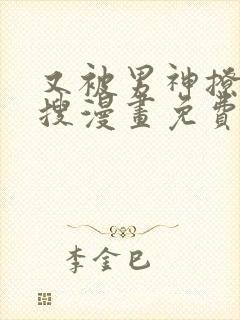 又被男神撩
搜漫畫免費
李金巳